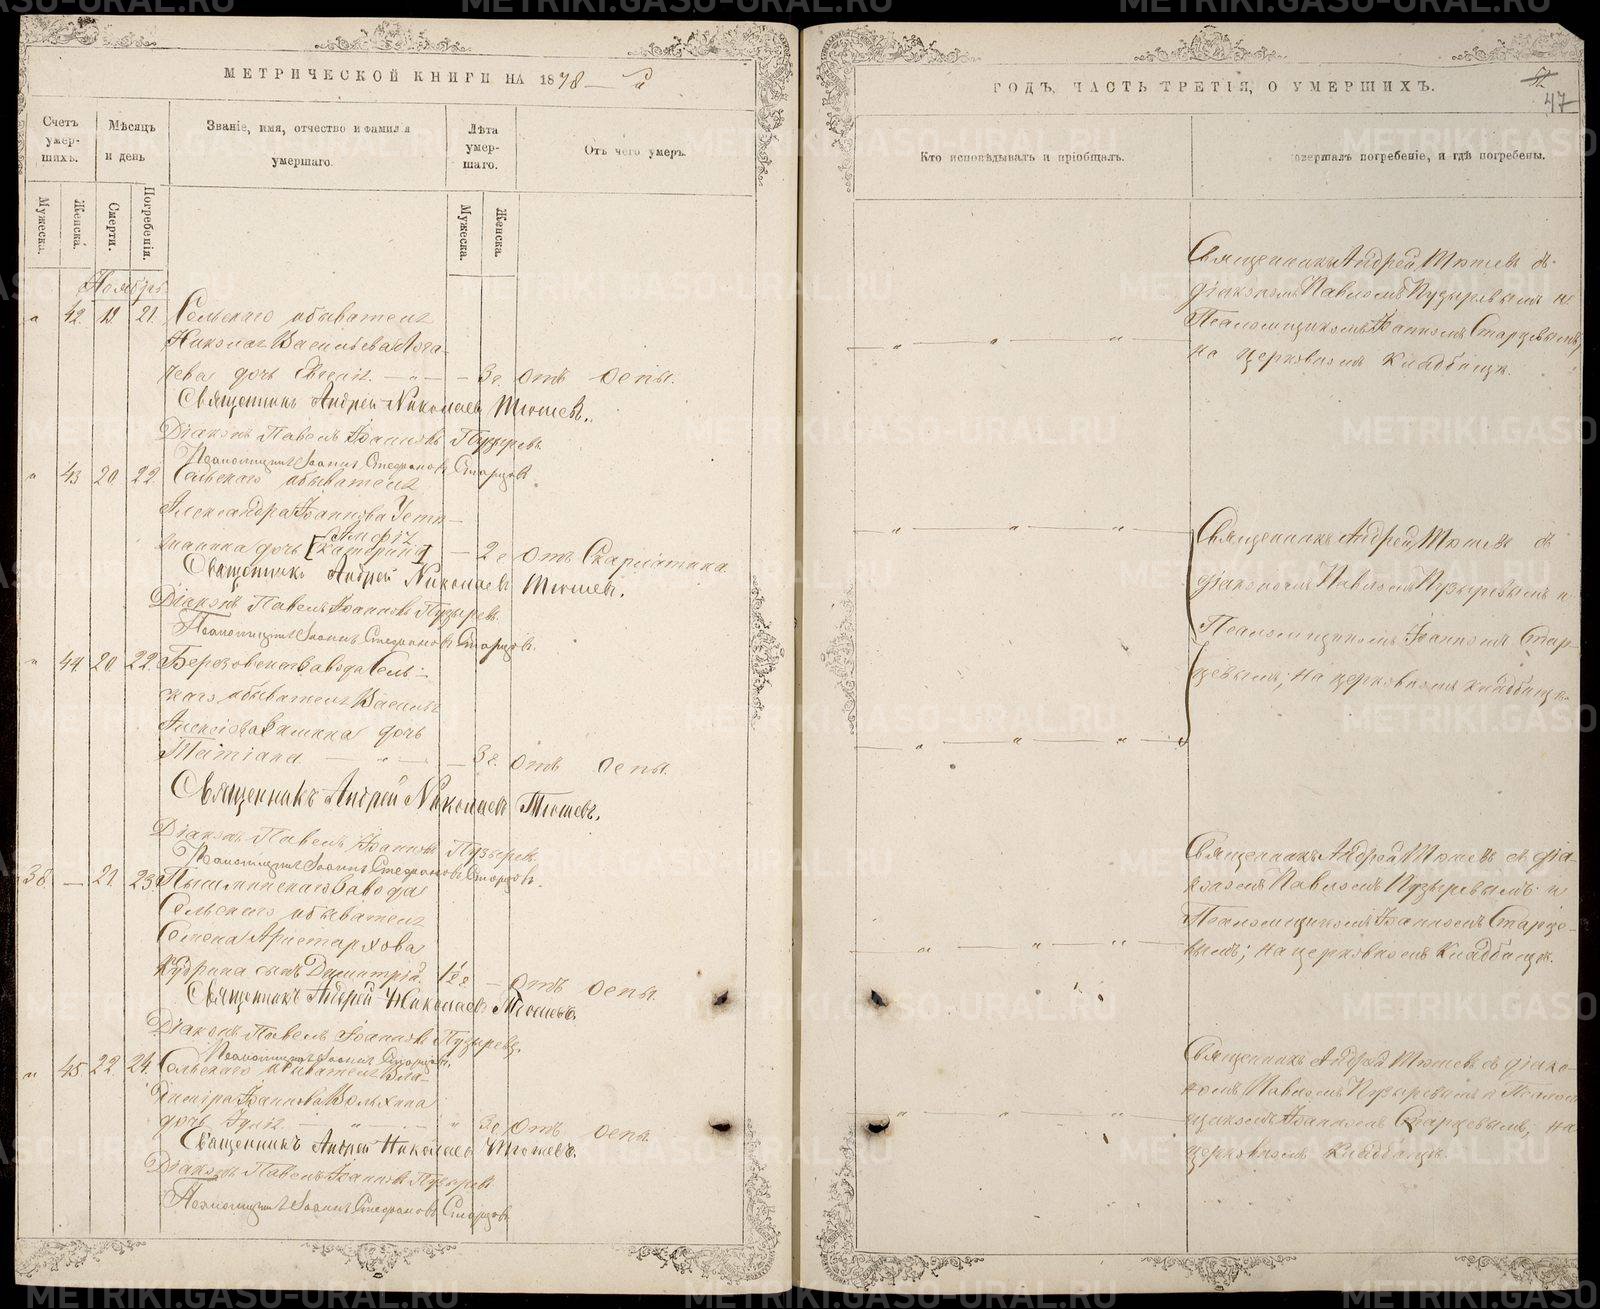 МЕТРИЧЕСКОЙ КНИГИ НА 1878 —й
Счетъ умерших.
Мѣсяцъ и день
Званіе, имя, отчество и фамилія умершаго.
Лѣта умершаго.
Отъ чего умеръ.
Мужеска.
Женска.
Смерти.
Погребенія.
Мужеска.
Женска.
Ноябрь
" 42 19 21 Сельскаго обывателя
Николая Васильева
чева дочь Евгенія — " — — 3 г. Отъ Оспы.
Священникъ Андрей Николаевъ Тюшевъ.
Діаконъ Павелъ Іоанновъ Пузыревъ
Псаломщикъ Іоаннъ Стефановъ Старцовъ
" 43 20 22 Сельскаго обывателя
Александра Іоаннова Устю-
жанина дочь [Екатерина] — 2 г. Отъ Скарлатина
Священникъ Андрей Николаевъ Тюшевъ.
Діаконъ Павелъ Іоанновъ Пузыревъ.
Псаломщикъ Іоаннъ Стефановъ Старцовъ.
" 44 20 22 Березовскаго завода Сель-
скаго обывателя Василія
Алексіева дочь
Татіана — " — — 3 г. Отъ Оспы.
Священникъ Андрей Николаевъ Тюшевъ.
Діаконъ Павелъ Іоанновъ Пузыревъ.
Псаломщикъ Іоаннъ Стефановъ Старцовъ.
38 — 21 23 Пышминскаго завода
Сельскаго обывателя
Семена Аристархова
Кудрина сынъ Димитрій. — Отъ Оспы.
Священникъ Андрей Николаевъ Тюшевъ.
Діаконъ Павелъ Іоанновъ Пузыревъ.
Псаломщикъ Іоаннъ Старцовъ.
" 45 22 24 Сельскаго обывателя Вла-
диміра Іоаннова Волыхина
дочь Юлія — " — " 3 г. Отъ Оспы.
Священникъ Андрей Николаевъ Тюшевъ.
Діаконъ Павелъ Іоанновъ Пузыревъ
Псаломщикъ Іоаннъ Стефановъ Старцовъ
ГОДЪ, ЧАСТЬ ТРЕТІЯ, О УМЕРШИХЪ.
47
Кто исповѣдывалъ и пріобщалъ.
совершалъ погребеніе, и гдѣ погребены.
Священникъ Андрей Тюшевъ съ
діакономъ Павломъ Пузыревымъ и
Псаломщикомъ Іоанномъ Старцевымъ,
на церковномъ кладбищѣ.
Священникъ Андрей Тюшевъ съ
діакономъ Павломъ Пузыревымъ и
Псаломщикомъ Іоанномъ Стар-
цевымъ; на церковномъ кладбищѣ.
Священникъ Андрей Тюшевъ съ діа-
кономъ Павломъ Пузыревымъ и
Псаломщикомъ Іоанномъ Старце-
вымъ; на церковномъ кладбищѣ.
Священникъ Андрей Тюшевъ съ діако-
номъ Павломъ Пузыревымъ и Псалом-
щикомъ Іоанномъ Старцевымъ; на
церковномъ кладбищѣ.
METRIKI.GASO-URAL.RU